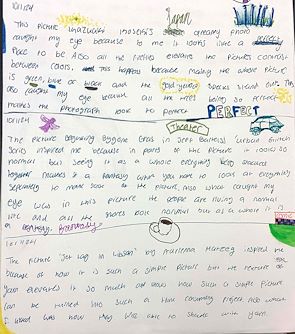 10/1/24
Japan
This picture creamy photo
caught my eye because to me it looks like a perfect
place to be. Also all the petals elevate the pictures contrast
between colors. this happens because making the whole picture
is green, blue or black and the gold yellow specks stand out. This
also caught my eye because all the trees being so perfect
makes the photograph look to perfect PERFECT
10/11/24
Theater
The picture beginning bygone eras in Jeff Bartels' Urban Glitch
Series inspired me because in parts of the picture it looks so
normal but seeing it as a whole everything being
together creates a fantasy what you have to look at everything
separately to make sense of the picture. Also what caught my
eye was in this picture the people are living a normal
life and all the stores look normal but as a whole it is
a fantasy.
10/17/24
The picture "Jet Lag in Lisbon" by inspired me
because of how it is such a simple picture but the texture of
yarn elevates it so much at shows how such a simple picture
can be turned into such a time consuming project. Also what
I liked was how they were able to shade with yarn.